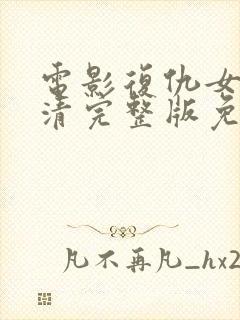 電影復仇女
清完整版免
凡不再凡_hx2